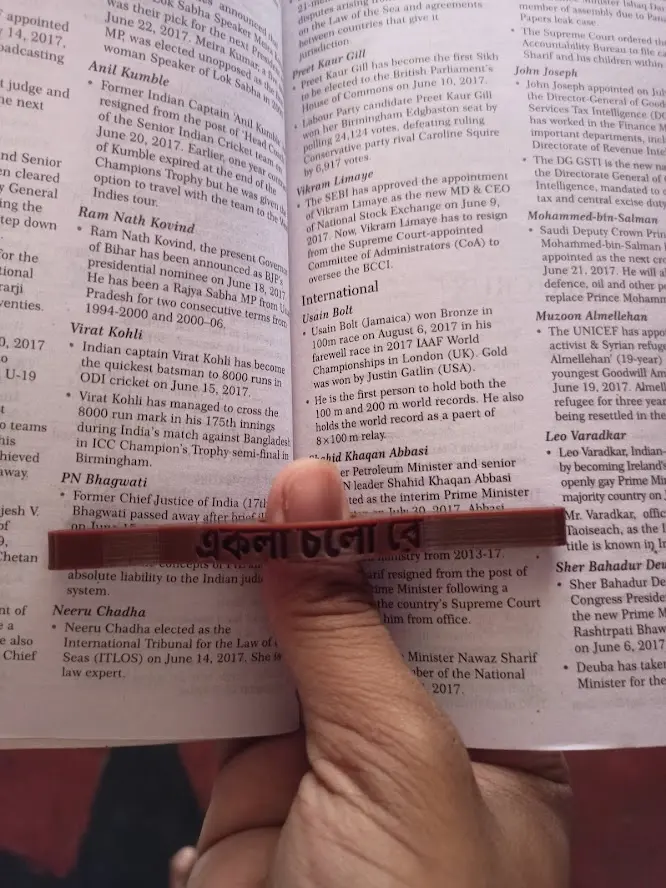 appointed
14, 2017.
oadcasting
judge and
he next
nd Senior
en cleared
y General
ing the
tep down
for the
tional
rarji
venties.
0, 2017
U-19
o teams
his
hieved
away.
jesh V.
of
9,
Chetan
nt of
e a
e also
Chief
Lok Sabha Speaker
was their pick for the next
June 22, 2017. Meira Kumar, a five
MP, was elected unopposed as the
woman Speaker of Lok Sabha in
Anil Kumble
• Former Indian Captain 'Anil Kumble
resigned from the post of 'Head
of the Senior Indian Cricket team on
June 20, 2017. Earlier, one year
of Kumble expired at the end of the
Champions Trophy but he was given the
option to travel with the team to the
Indies tour.
Ram Nath Kovind
• Ram Nath Kovind, the present Governor
of Bihar has been announced as BJP's
presidential nominee on June 18, 2017.
He has been a Rajya Sabha MP from
Pradesh for two consecutive terms from
1994-2000 and 2000–06.
Virat Kohli
• Indian captain Virat Kohli has become
the quickest batsman to 8000 runs in
ODI cricket on June 15, 2017.
• Virat Kohli has managed to cross the
8000 run mark in his 175th innings
during India's match against Bangladesh
in ICC Champion's Trophy semi-final in
Birmingham.
PN Bhagwati
• Former Chief Justice of India (17th
Bhagwati passed away after brief
on June 15
concepts of
absolute liability to the Indian
system.
Neeru Chadha
• Neeru Chadha elected as the
International Tribunal for the Law of
Seas (ITLOS) on June 14, 2017. She is
law expert.
disputes arising
on the Law of the Sea and agreements
between countries that give it
jurisdiction.
Preet Kaur Gill
• Preet Kaur Gill has become the first Sikh
to be elected to the British Parliament's
House of Commons on June 10, 2017.
• Labour Party candidate Preet Kaur Gill
won her Birmingham Edgbaston seat by
polling 24,124 votes, defeating ruling
Conservative party rival Caroline Squire
by 6,917 votes.
Vikram Limaye
• The SEBI has approved the appointment
of Vikram Limaye as the new MD & CEO
of National Stock Exchange on June 9,
2017. Now, Vikram Limaye has to resign
from the Supreme Court-appointed
Committee of Administrators (CoA) to
oversee the BCCI.
International
Usain Bolt
• Usain Bolt (Jamaica) won Bronze in
100m race on August 6, 2017 in his
farewell race in 2017 IAAF World
Championships in London (UK). Gold
was won by Justin Gatlin (USA).
• He is the first person to hold both the
100 m and 200 m world records. He also
holds the world record as a paert of
8×100 m relay.
Khaqan Abbasi
er Petroleum Minister and senior
N leader Shahid Khaqan Abbasi
ted as the interim Prime Minister
on July 30, 2017. Abbasi
একলা চলো রে
ministry from 2013-17.
resigned from the post of
Minister following a
the country's Supreme Court
him from office.
Minister Nawaz Sharif
ber of the National
2017.
member of assembly due to
Papers leak case.
• The Supreme Court ordered the
Accountability Bureau to file
Sharif and his children within
John Joseph
• John Joseph appointed on
the Director-General of Goods
Services Tax Intelligence
has worked in the Finance
important departments,
Directorate of Revenue
• The DG GSTI is the new
the Directorate General of
Intelligence, mandated to
tax and central excise duty
Mohammed-bin-Salman
• Saudi Deputy Crown
Mohammed-bin-Salman
appointed as the next
June 21, 2017. He will
defence, oil and other
replace Prince
Muzoon Almellehan
• The UNICEF has
activist & Syrian
Almellehan' (19-year)
youngest Goodwill
June 19, 2017.
refugee for three
being resettled in the
Leo Varadkar
• Leo Varadkar, Indian-
by becoming Ireland's
openly gay Prime
majority country on
Mr. Varadkar,
Taoiseach, as the
title is known in
Sher Bahadur
• Sher Bahadur
Congress
the new Prime
Rashtrpati
on June 6, 2017
• Deuba has taken
Minister for the